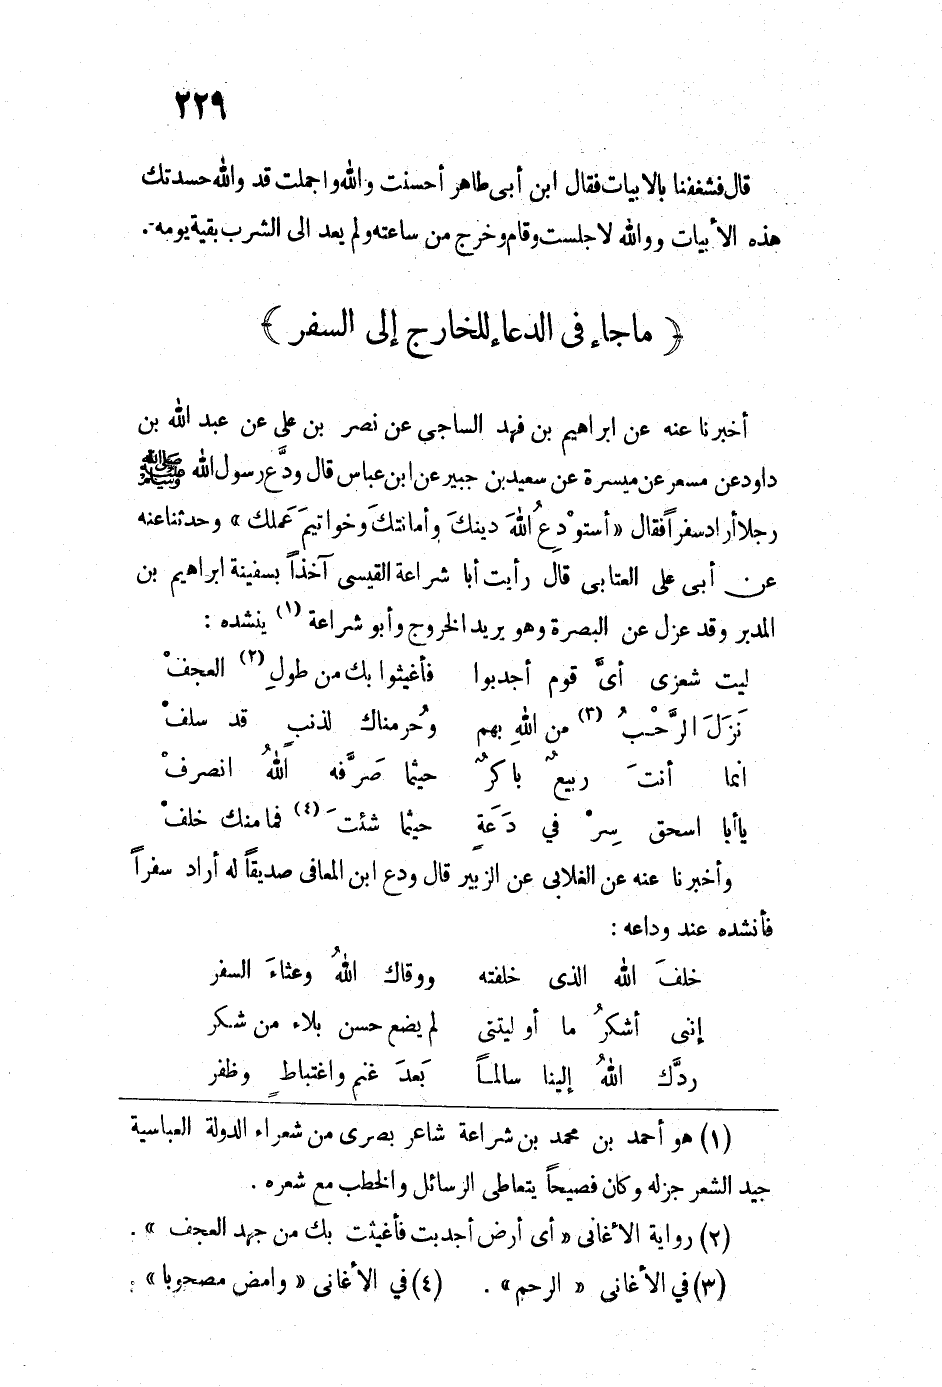 ٢٢٩
قال فشغفنا بالابيات فقال ابن أبى طاهر أحسنت والله واجملت قد والله حسدتك
هذه الأبيات ووالله لاجلست وقام وخرج من ساعته ولم يعد الى الشرب بقية يومه .
﴿ ماجاء فى الدعاء للخارج إلى السفر ﴾
أخبرنا عنه عن ابراهيم بن فهد الساجى عن نصر بن على عن عبد الله بن
داود عن مسعر عن ميسرة عن سعيد بن جبير عن ابن عباس قال ودَّع رسول الله ﷺ
رجلا أراد سفراً فقال « أستوْدِعُ اللهَ دينكَ وأمانتكَ وخواتيمَ عَملك » وحدثنا عنه
عن أبى على العتابى قال رأيت أبا شراعة القيسى آخذاً بسفينة ابراهيم بن
المدبر وقد عزل عن البصرة وهو يريد الخروج وأبو شراعة (١) ينشده :
ليت شعرى أىَّ قوم أجدبوا فأغيثوا بك من طولِ (٢) العجفْ
نَزَلَ الرَّحْبُ (٣) من اللهِ بهم وحُرمناك لذنبٍ قد سلفْ
انما أنتَ ربيعٌ باكرٌ حيثما صَرَّفه اللهُ انصرفْ
ياأبا اسحق سِرْ في دَعَةٍ حيثما شئتَ (٤) فمامنك خلفْ
وأخبرنا عنه عن الغلابى عن الزبير قال ودع ابن المعافى صديقاً له أراد سفراً
فأنشده عند وداعه :
خلفَ الله الذى خلفته ووقاك اللهُ وعثاءَ السفر
إننى أشكرُ ما أوليتنى لم يضع حسن بلاء من شكر
ردَّك اللهُ إلينا سالمـاً بَعدَ غنم واغتباطٍ وظفر
(١) هو أحمد بن محمد بن شراعة شاعر بصرى من شعراء الدولة العباسية
جيد الشعر جزله وكان فصيحاً يتعاطى الرسائل والخطب مع شعره .
(٢) رواية الأغانى « أى أرض أجدبت فأغيثت بك من جهد العجف » .
(٣) في الأغانى « الرحم » . (٤) في الأغانى « وامض مصحوبا » .